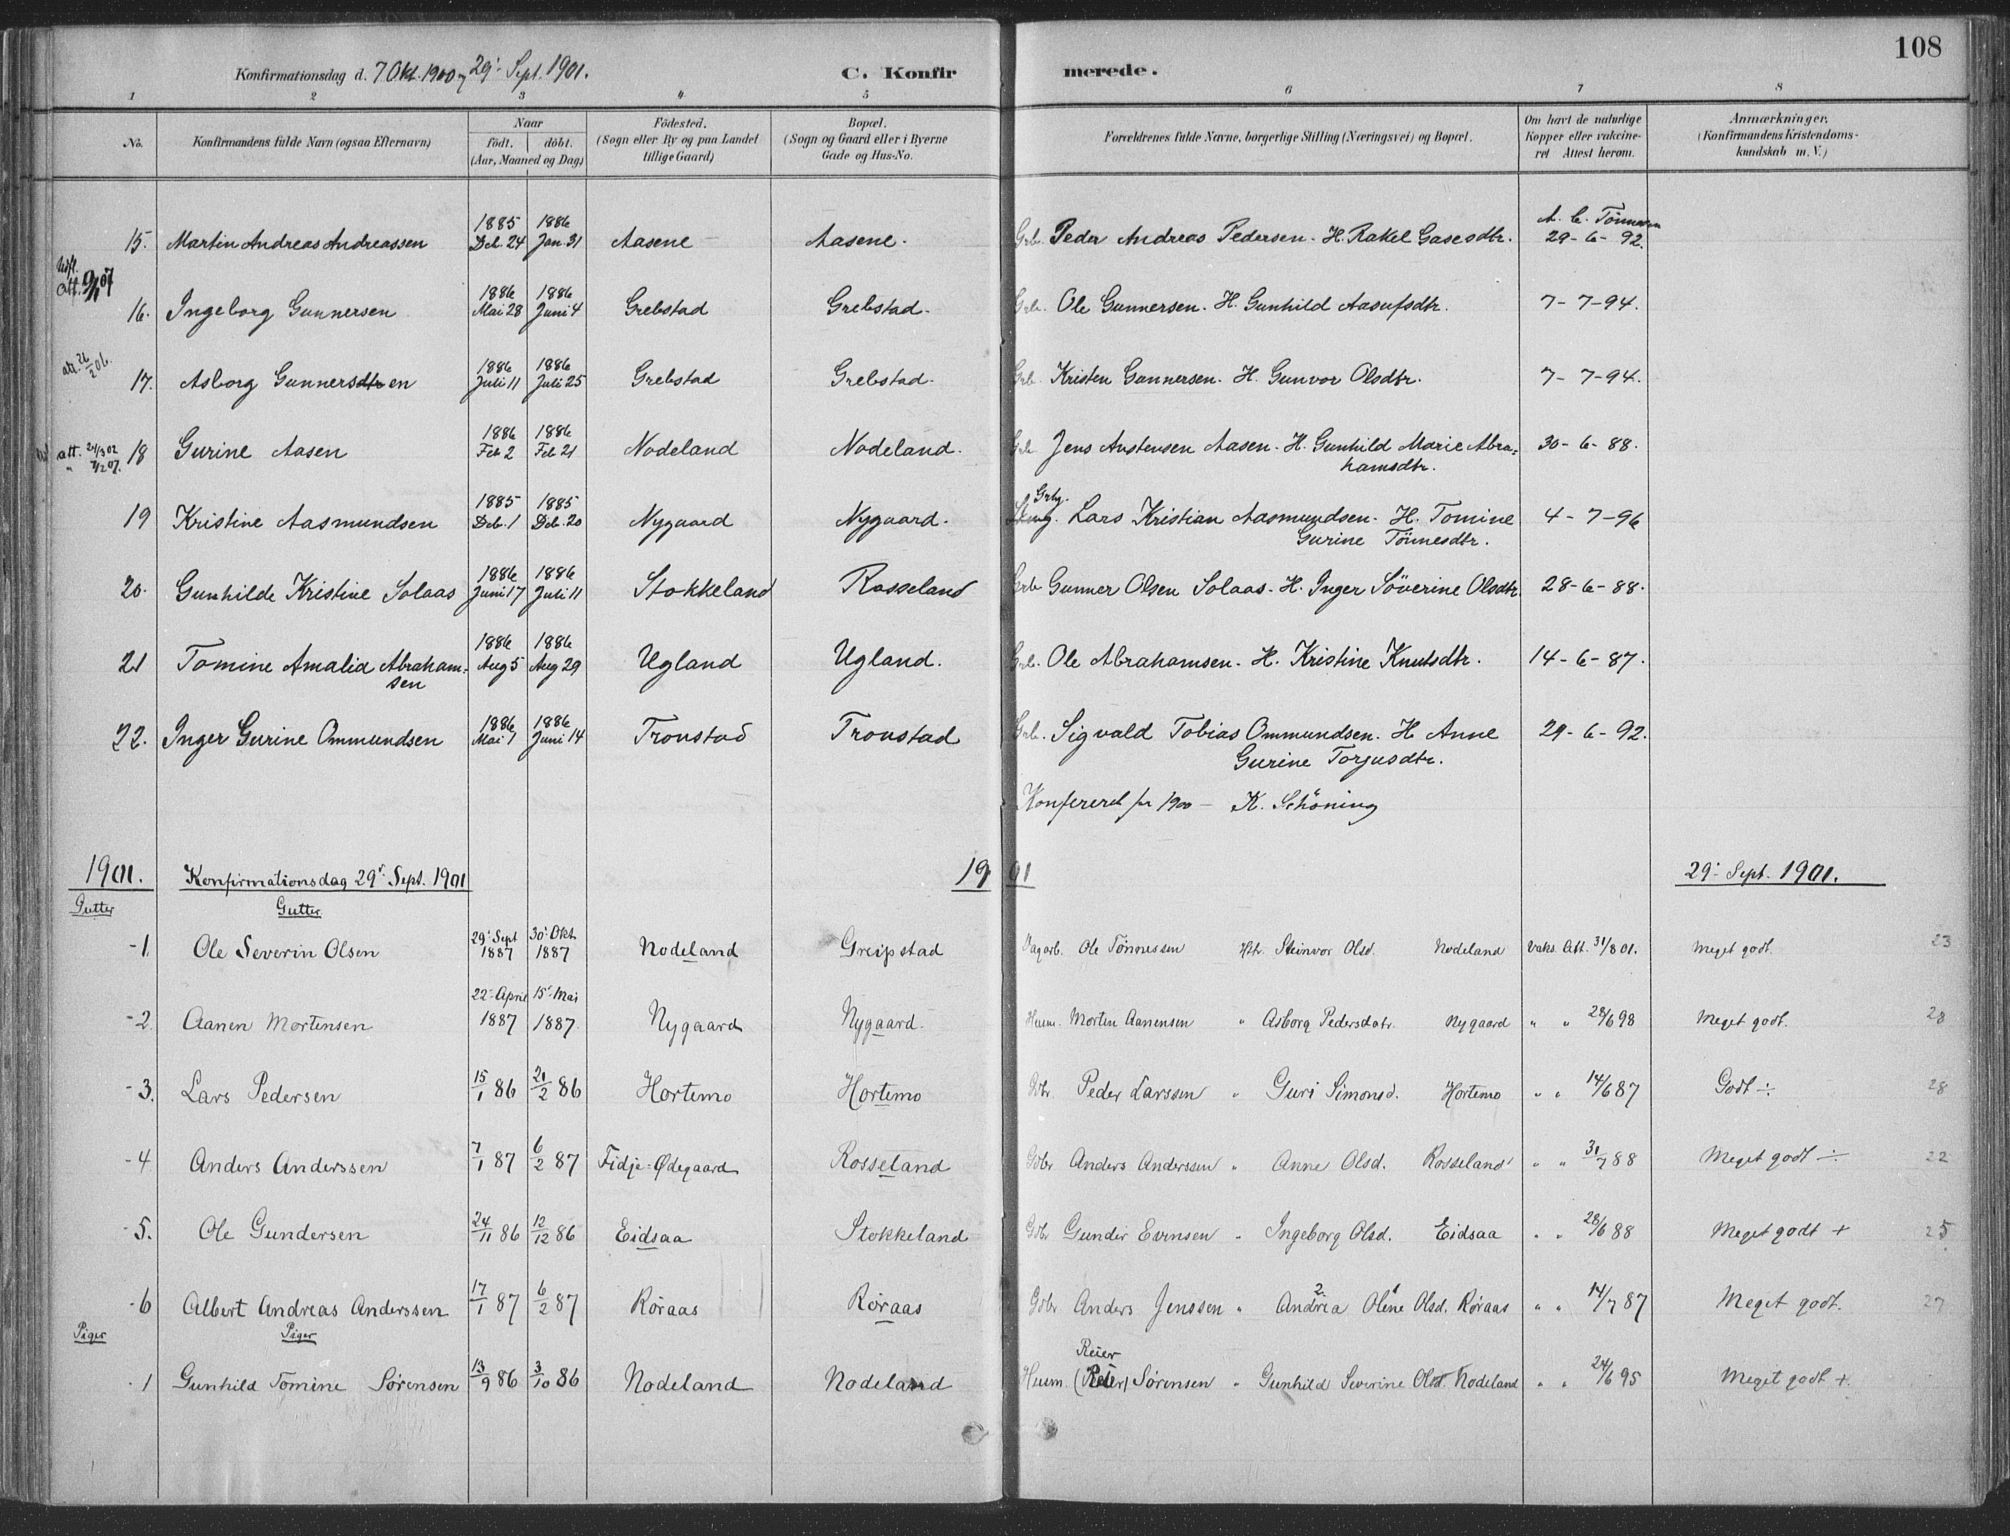 108
Konfirmationsdag d. 7 Okt. 1900 og 29' Sept. 1901.
C. Konfirmerede.
1 2 3 4 5 6 7 8
No.
Konfirmandens fulde Navn (ogsaa Efternavn)
Naar
födt. döbt.
(Aar, Maaned og Dag)
Födested.
(Sogn eller By og paa Landet
tillige Gaard)
Bopæl.
(Sogn og Gaard eller i Byerne
Gade og Hus-No.
Forældrenes fulde Navne, borgerlige Stilling (Næringsvei) og Bopæl.
Om havt de naturlige
Kopper eller vakcine-
ret Attest herom.
Anmærkninger.
(Konfirmandens Kristendoms-
kundskab m. V.)
1885 1886 A. C. Tönnesen
15. Martin Andreas Andreassen Deb. 24 Jan 31 Aasene Aasene. Grb. Peder Andreas Pedersen. H. Rakel Gasesdtr. 29-6-92.
Udf.
Att. 9/1 07
1886 1886
16. Ingeborg Gunnersen Mai 28 Juni 4 Grebstad Grebstad. Grb. Ole Gunnersen. H. Gunhild Aasufsdtr. 7-7-94.
att. 26/2 06.
1886 1886
17. Asborg Gunnersdtr en Juli 11 Juli 25 Grebstad Grebstad. Grb. Kristen Gunnersen. H. Gunvor Olsdtr. 7-7-94.
1886 1886
att. 24/3 02 18 Gurine Aasen Feb 2 Feb 21 Nodeland Nodeland. Grb Jens Austensen Aasen. H. Gunhild Marie Abra- 30-6-88.
" 7/2 07. hamsdtr.
1885 1885 Grbg.
19 Kristine Aasmundsen Deb. 1 Deb. 20 Nygaard Nygaard. Lars Kristian Aasmundsen. H. Tomine 4-7-96
Gurine Tönnesdtr.
1886 1886
20. Gunhilde Kristine Solaas Juni 17 Juli 11 Stokkeland Rosseland Grb Gunner Olsen Solaas. H. Inger Söverine Olsdtr. 28-6-88.
1886 1886
21 Tomine Amalia Abraham- Aug 5 Aug 29 Ugland Ugland. Grb. Ole Abrahamsen. H. Kristine Knutsdtr. 14-6-87.
sen
1886 1886
22. Inger Gurine Ommundsen Mai 1 Juni 14 Tronstad Tronstad Grb. Sigvald Tobias Ommundsen. H Anne 29-6-92.
Gurine Torjusdtr.
Konfereret for 1900 — K. Schöning
1901. Konfirmationsdag 29' Sept. 1901 1901 29' Sept. 1901.
Gutter Gutter
29' Sept 30' Okt.
-1. Ole Severin Olsen 1887 1887 Nodeland Greipstad Dagarb. Ole Tönnessen Hstr. Steinvor Olsd. Nodeland Vaks. Att. 31/8 01. Meget godt. 23
22' April 15' Mai
-2. Aanen Mortensen 1887 1887. Nygaard Nygaard. Huum. Morten Aanensen " Asborg Pedersdatr. Nygaard " " 28/6 98 Meget godt. 28
-3. Lars Pedersen 15/1 86 21/2 86 Hortemo Hortemo Gbr. Peder Larssen " Guri Simonsd. Hortemo " " 14/6 87 Godt ÷ 28
-4 Anders Anderssen 7/1 87 6/2 87 Fidje-Ødegaard Rosseland Gbr Anders Anderssen " Anne Olsd. Rosseland " " 31/7 88 Meget godt ÷ 22
-5. Ole Gundersen 24/11 86 12/12 86 Eidsaa Stokkeland Gbr Gunder Evensen " Ingeborg Olsd. Eidsaa " " 28/6 88 Meget godt + 25
2 1
-6 Albert Andreas Anderssen 17/1 87 6/2 87 Røraas Røraas Gbr Anders Jenssen " Andrea Oline Olsd. Røraas " " 14/7 87 Meget godt. 27
Piger Piger
Reier
-1 Gunhild Tomine Sørensen 13/9 86 3/10 86 Nodeland Nodeland Huum. (Reier) Sørensen " Gunhild Severine Olsd. Nodeland " " 24/6 95 Meget godt +.